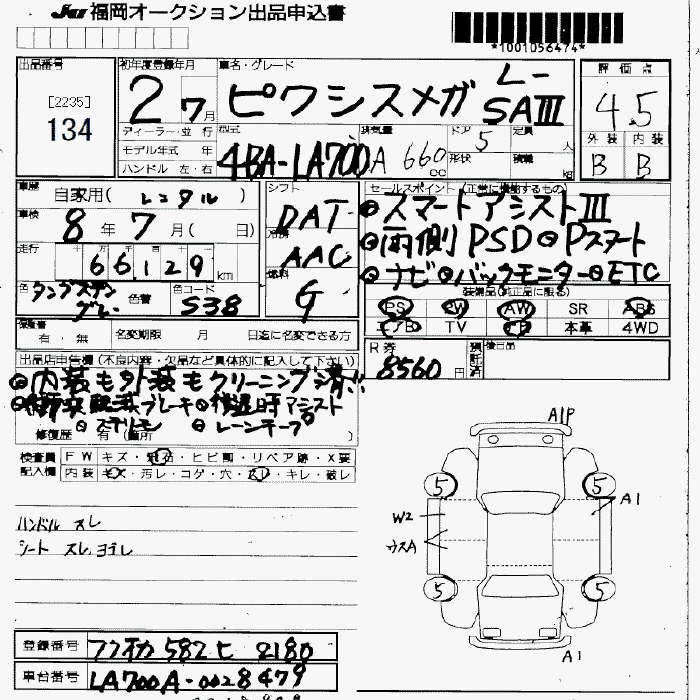 JU 福岡オークション出品申込書
*1001056474*
出品番号
[2235]
134
初年度登録年月
2 7月
車名・グレード
ピクシスメガ L-SAⅢ
評価点
4.5
外装 内装
B B
ディーラー・並行
モデル年式 年
ハンドル 左・右
型式
4BA-LA700A
排気量
660 cc
ドア 5
形状
定員 人
積載 kg
車歴
自家用(レンタル)
車検
8年 7月( 日)
走行
66,129 km
色 タングステングレー
色替
色コード S38
シフト
DAT
冷房
AAC
燃料
G
セールスポイント(正常に機能するもの)
◎スマートアシストⅢ
◎両側PSD ◎Pスタート
◎ナビ ◎バックモニター ◎ETC
装備品(純正品に限る)
PS PW AW SR ABS
エアB TV ナビ 本革 4WD
保険書
有・無
名変期限 月 日迄に名変できる方
R券
8560円
預託済
後日品
出品店申告欄(不良内容・欠品など具体的に記入して下さい)
◎内装も外装もクリーニング済!!
◎衝突軽減ブレーキ ◎後退時アシスト
◎ステリモ ◎レーンキープ
修復歴 有 (箇所
検査員記入欄
FW キズ・飛石・ヒビ割・リペア跡・X要
内装 キズ・汚レ・コゲ・穴・スレ・キレ・破レ
ハンドル スレ
シート スレ、ヨゴレ
A1P
5 5
A1
W2
ウスA
5 5
A1
登録番号 フクオカ 582 ヒ 2180
車台番号 LA700A-0028479